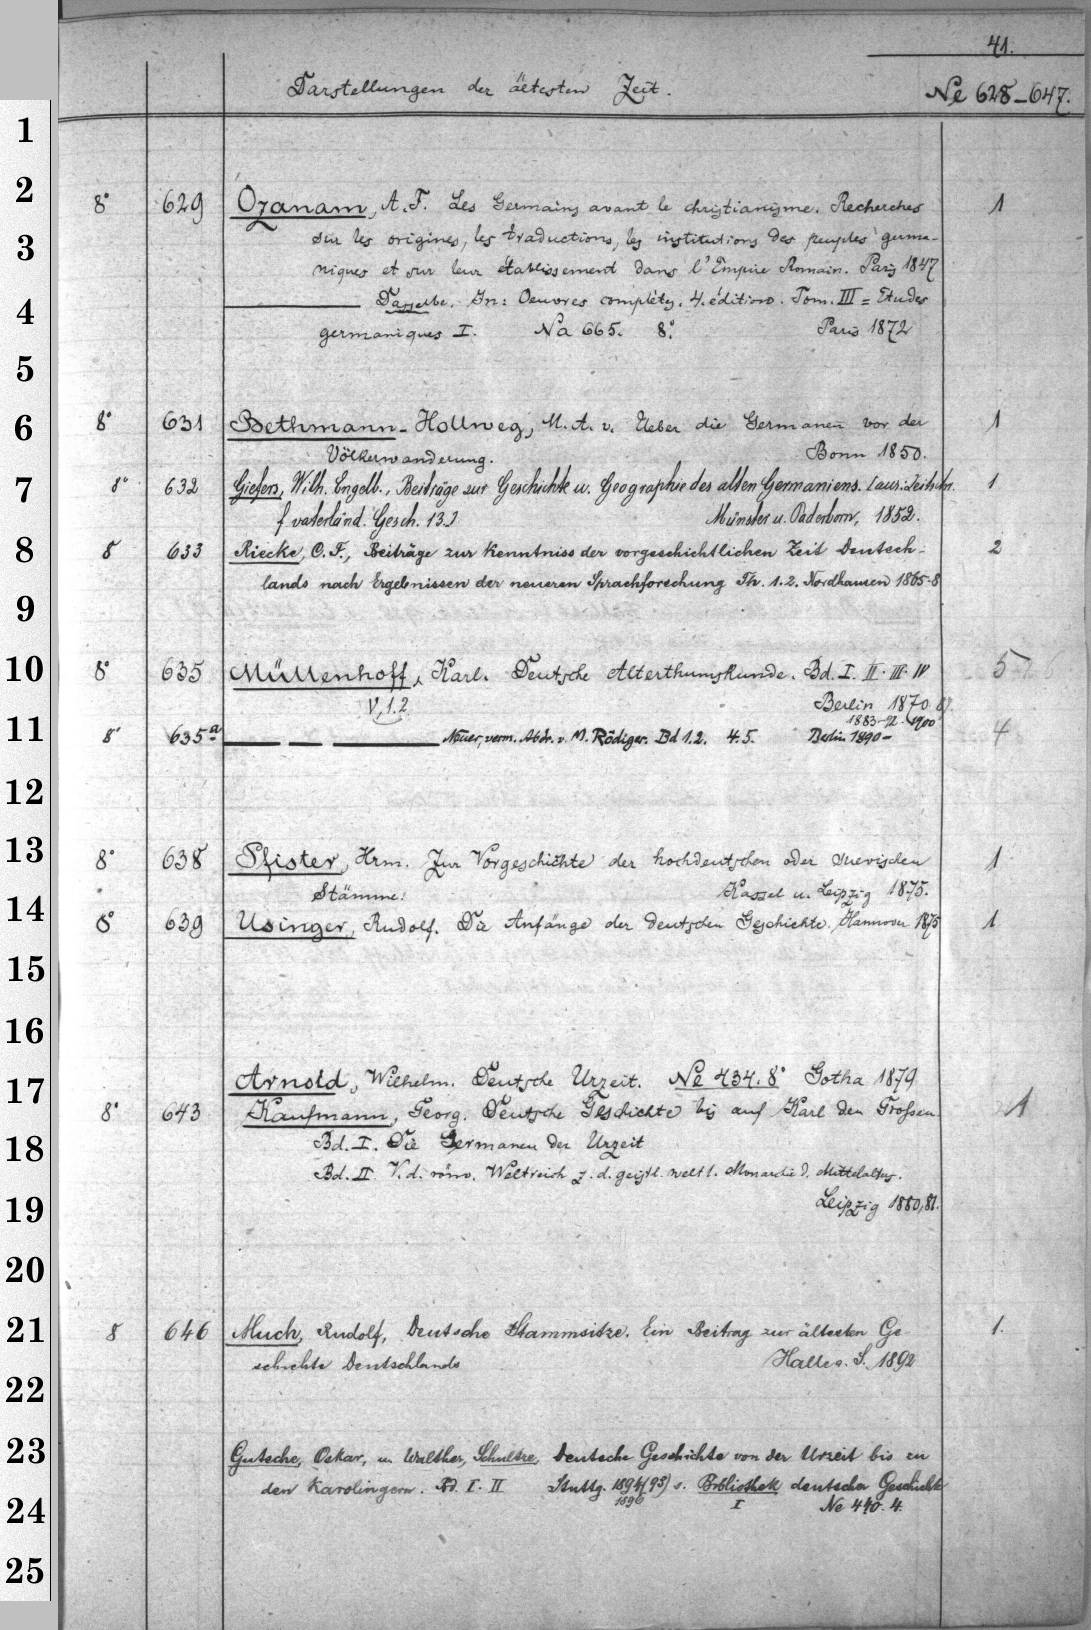 41.
Darstellungen der ältesten Zeit.
Ne 628-647.
1
2
8° 629 Ozanam, A. F. Les Germains avant le christianisme. Recherches 1
3
sur les origines, les traductions, les institutions des peuples germa-
niques et sur leur établissement dans l'Empire Romain. Paris 1847
4
Dasselbe. In: Oeuvres complètes. 4. édition. Tom. III = Etudes
germaniques I. Na 665. 8° Paris 1872
5
6
8° 631 Bethmann-Hollweg, M. A. v. Ueber die Germanen vor der 1
Völkerwanderung. Bonn 1850.
7
8° 632 Giefers, Wilh. Engelb., Beiträge zur Geschichte u. Geographie des alten Germaniens. (aus: Zeitschr. 1
f vaterländ. Gesch. 13.) Münster u. Paderborn, 1852.
8
8 633 Riecke, C. F., Beiträge zur Kenntniss der vorgeschichtlichen Zeit Deutsch- 2
lands nach Ergebnissen der neueren Sprachforschung Th. 1.2. Nordhausen 1865-8
9
10
8° 635 Müllenhoff, Karl. Deutsche Alterthumskunde. Bd. I. II. III. IV 5
V, 1.2 Berlin 1870. 87.
1883-92 1900
11
8° 635a Neuer, verm. Abdr. v. M. Rödiger. Bd 1.2. 4.5. Berlin 1890- 4
12
13
8° 638 Pfister, Hrm. Zur Vorgeschichte der hochdeutschen oder suevischen 1
Stämme. Kassel u. Leipzig 1875.
14
8° 639 Usinger, Rudolf. Die Anfänge der deutschen Geschichte. Hannover 1875 1
15
16
17
Arnold, Wilhelm. Deutsche Urzeit. Ne 434. 8° Gotha 1879
8° 643 Kaufmann, Georg. Deutsche Geschichte bis auf Karl den Grossen. 1
18
Bd. I. Die Germanen der Urzeit
Bd. II V. d. röm. Weltreich z. d. geistl. weltl. Monarchie d. Mittelalters.
19
Leipzig 1880,81.
20
21
8 646 Much, Rudolf, Deutsche Stammsitze. Ein Beitrag zur ältesten Ge 1.
schichte Deutschlands Halle a. S. 1892
22
23
Gutsche, Oskar, u. Walther, Schultze, Deutsche Geschichte von der Urzeit bis zu
den Karolingern. Bd. I. II Stuttg. 1894(95) s. Bibliothek deutscher Geschichte
24
1896 I Ne 440. 4.
25